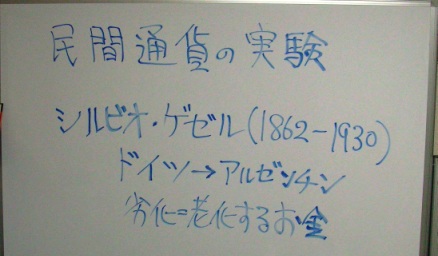 民間通貨の実験
シルビオ・ゲゼル(1862-1930)
ドイツ→アルゼンチン
劣化=老化するお金